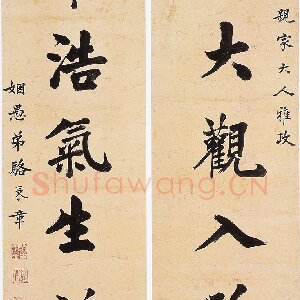 親家大人雅政
大觀入
浩氣生
姻愚弟駱良章
Shufawang.CN